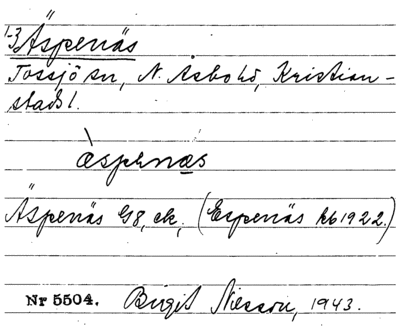 1-3 Äspenäs
Tossjö sn, N. Åsbo hd, Kristian-
stads l.
àspenæs
Äspenäs G8, ek, (Espenäs kb 1922.)
Nr 5504. Birgit Nilsson, 1943.